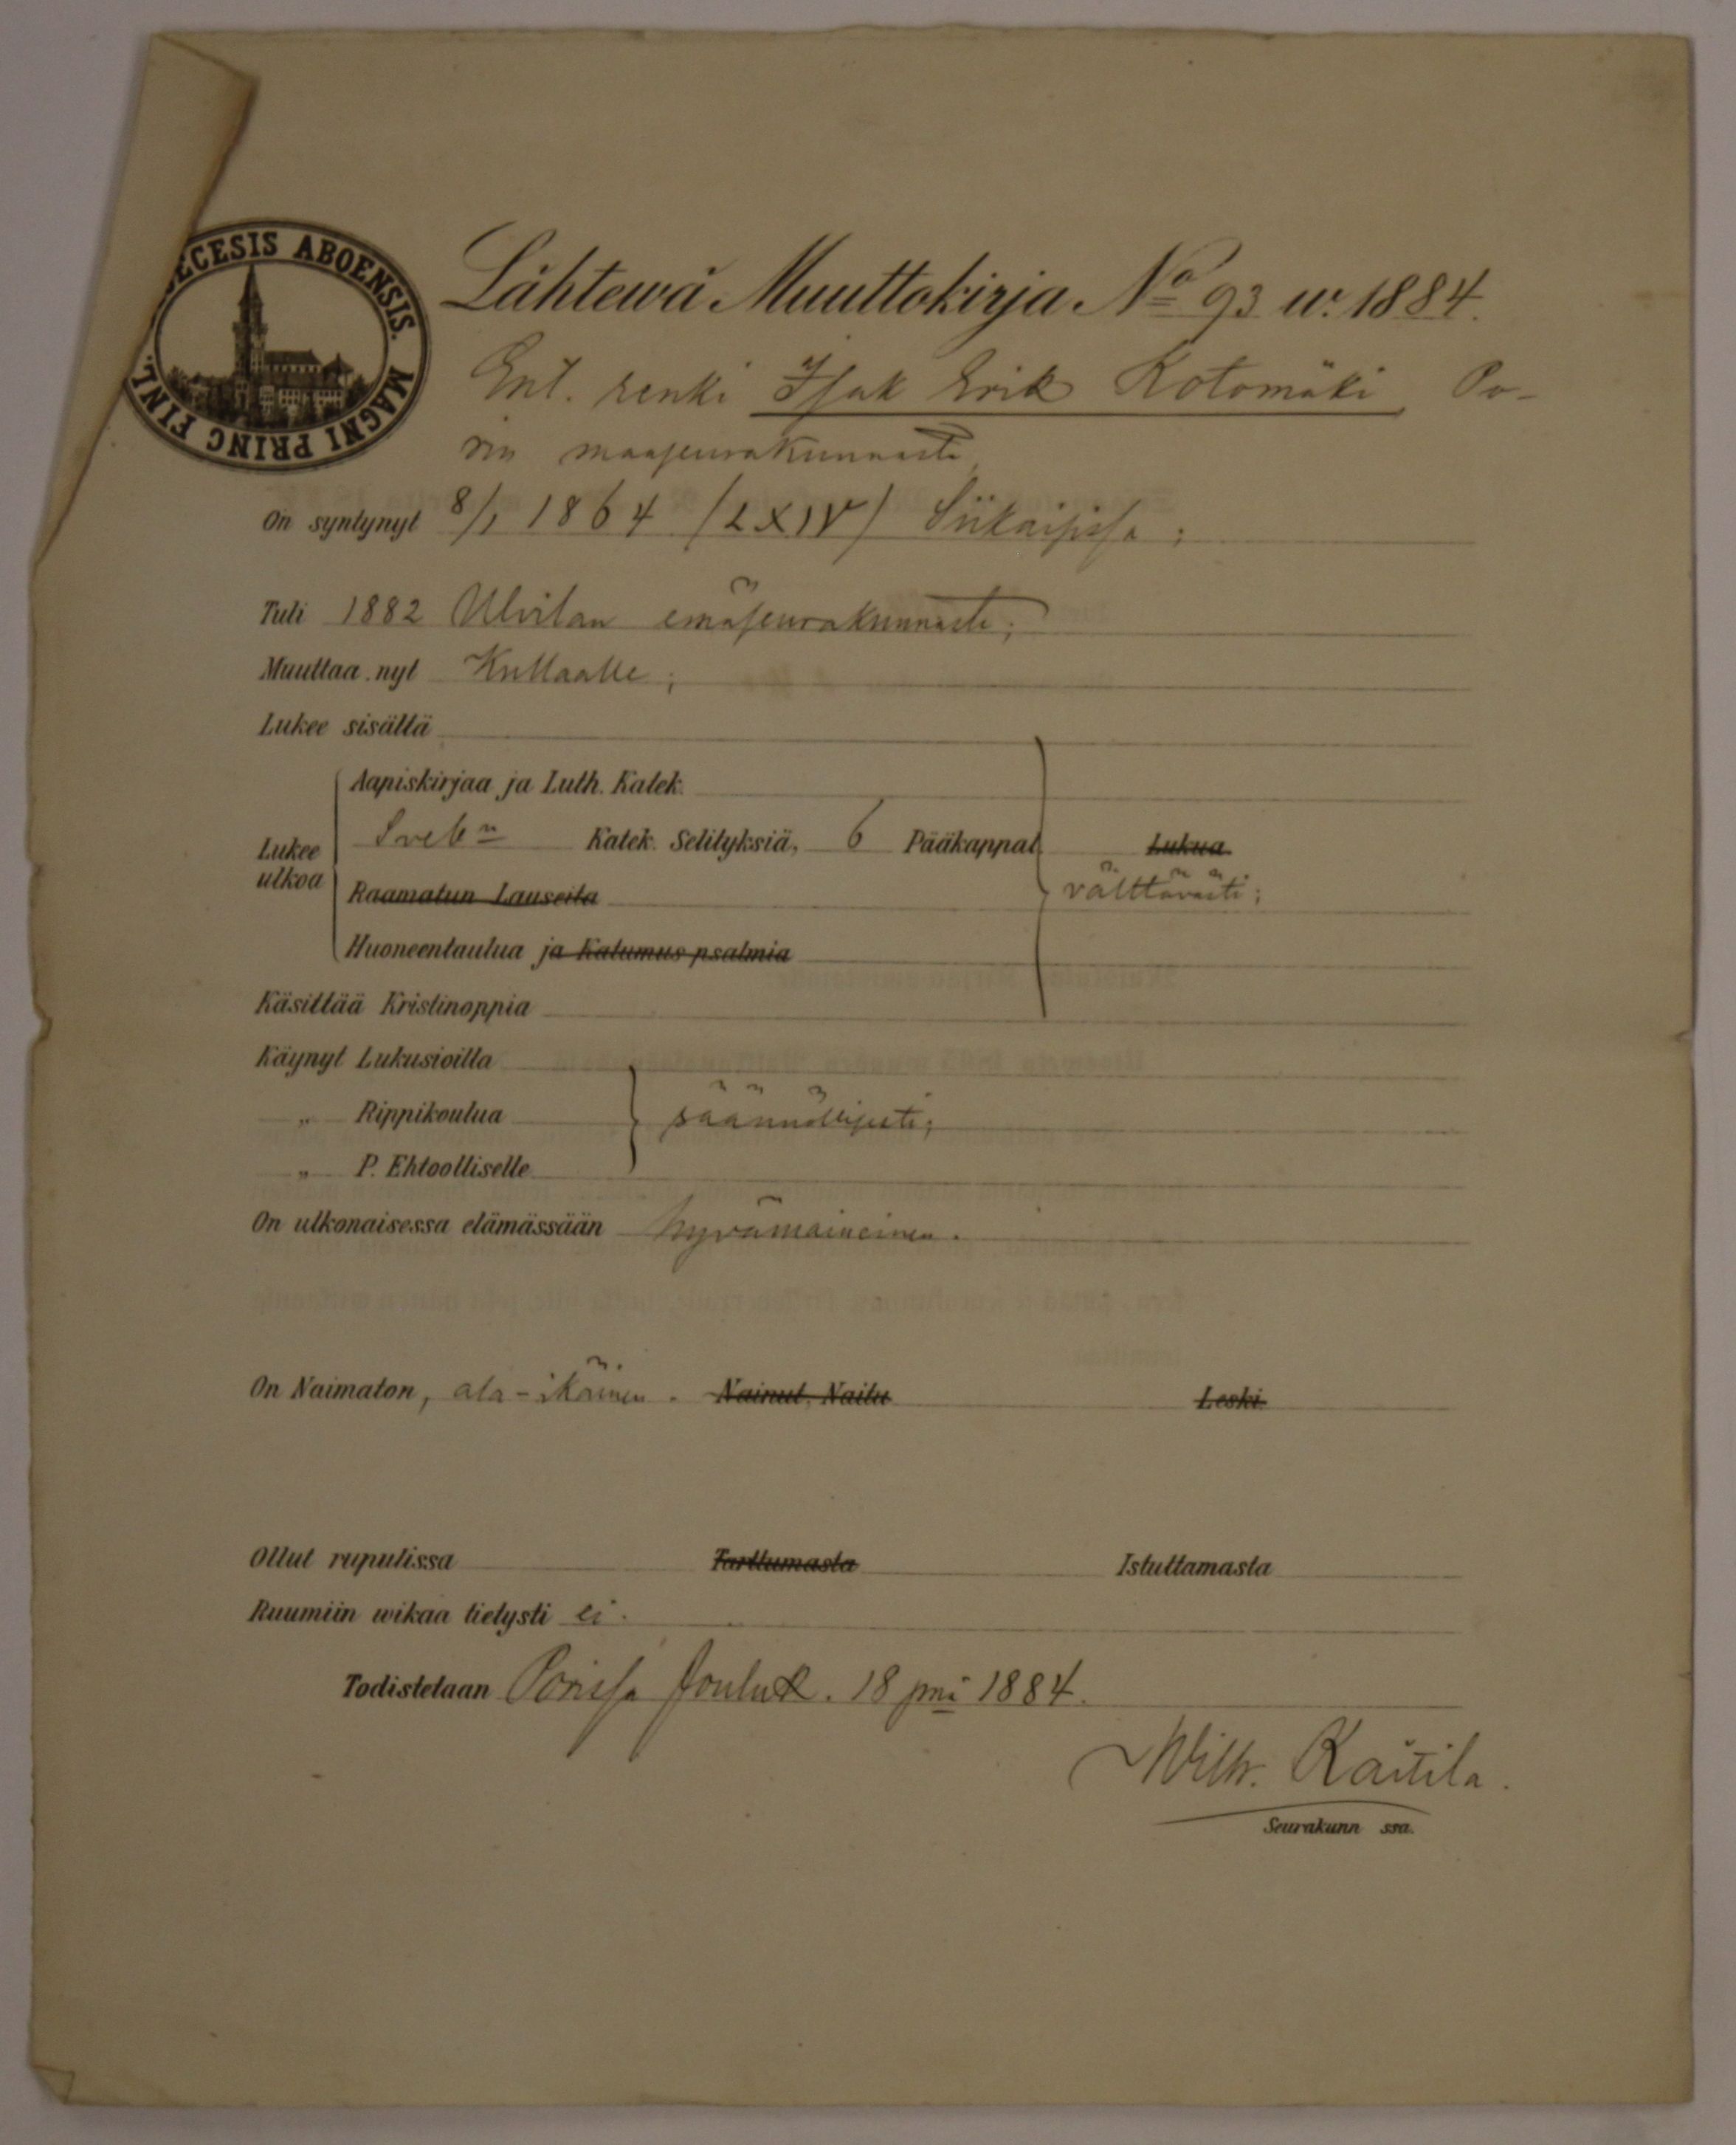 ECESIS ABOENSIS. MAGNI PRINC FINL.
Lähtewä Muuttokirja No 93 w. 1884.
Ent. renki Isak Erik Kotomäki, Po-
rin maaseurakunnasta
On syntynyt 8/1 1864 (LXIV) Siikaisissa;
Tuli 1882 Ulvilan emäseurakunnasta;
Muuttaa nyt Kullaalle;
Lukee sisältä
Aapiskirjaa ja Luth. Katek.
Lukee ulkoa Sveb:n Katek. Selityksiä, 6 Pääkappal. Lukua
Raamatun Lauseita välttävästi;
Huoneentaulua ja Katumus psalmia
Käsittää Kristinoppia
Käynyt Lukusioilla
„ Rippikoulua säännöllisesti;
„ P. Ehtoolliselle
On ulkonaisessa elämässään hyvämaineinen.
On Naimaton, ala-ikäinen. Nainut, Naitu Leski.
Ollut rupulissa Tarttumasta Istuttamasta
Ruumiin wikaa tietysti ei.
Todistetaan Porissa Jouluk. 18 pnä 1884.
Wilh. Raitila.
Seurakunn ssa.